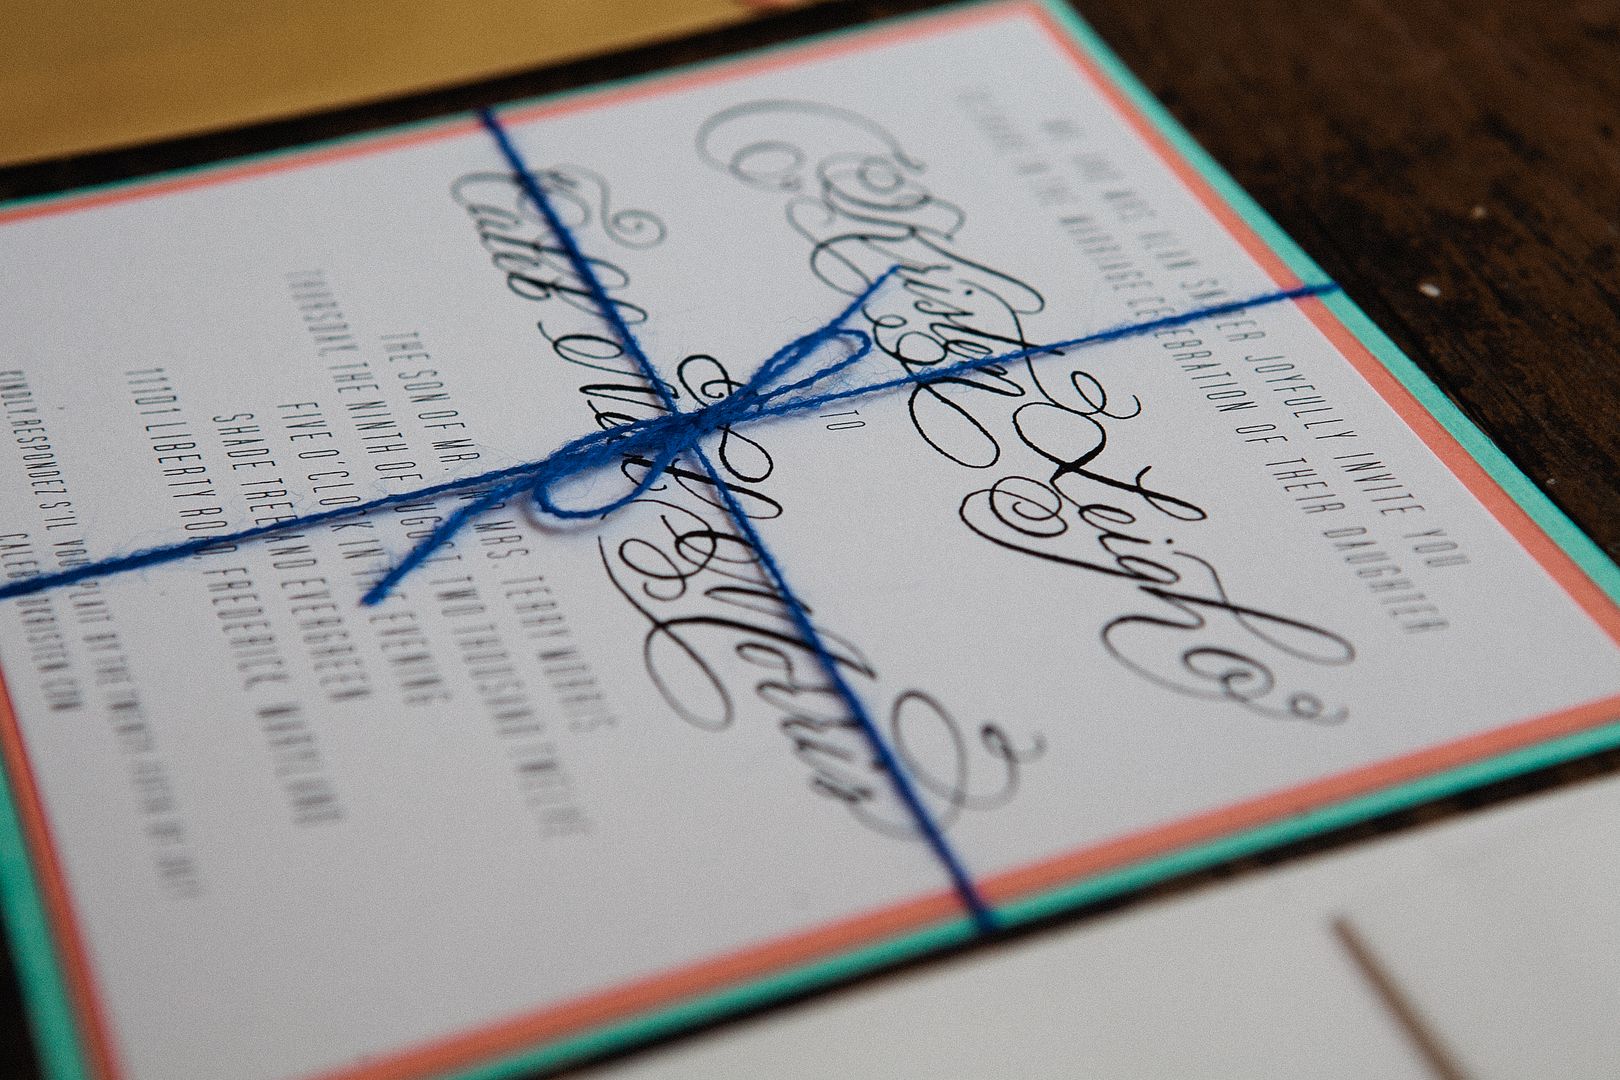 MR. AND MRS. ALAN SNYDER JOYFULLY INVITE YOU
TO THE MARRIAGE CELEBRATION OF THEIR DAUGHTER
Kristen Leigh
TO
Caleb Morris
THE SON OF MR. AND MRS. TERRY MORRIS
THURSDAY, THE NINTH OF AUGUST, TWO THOUSAND TWELVE
FIVE O'CLOCK IN THE EVENING
SHADE TREES AND EVERGREEN
11701 LIBERTY ROAD, FREDERICK, MARYLAND
KINDLY RESPONDEZ S'IL VOUS PLAIT BY THE